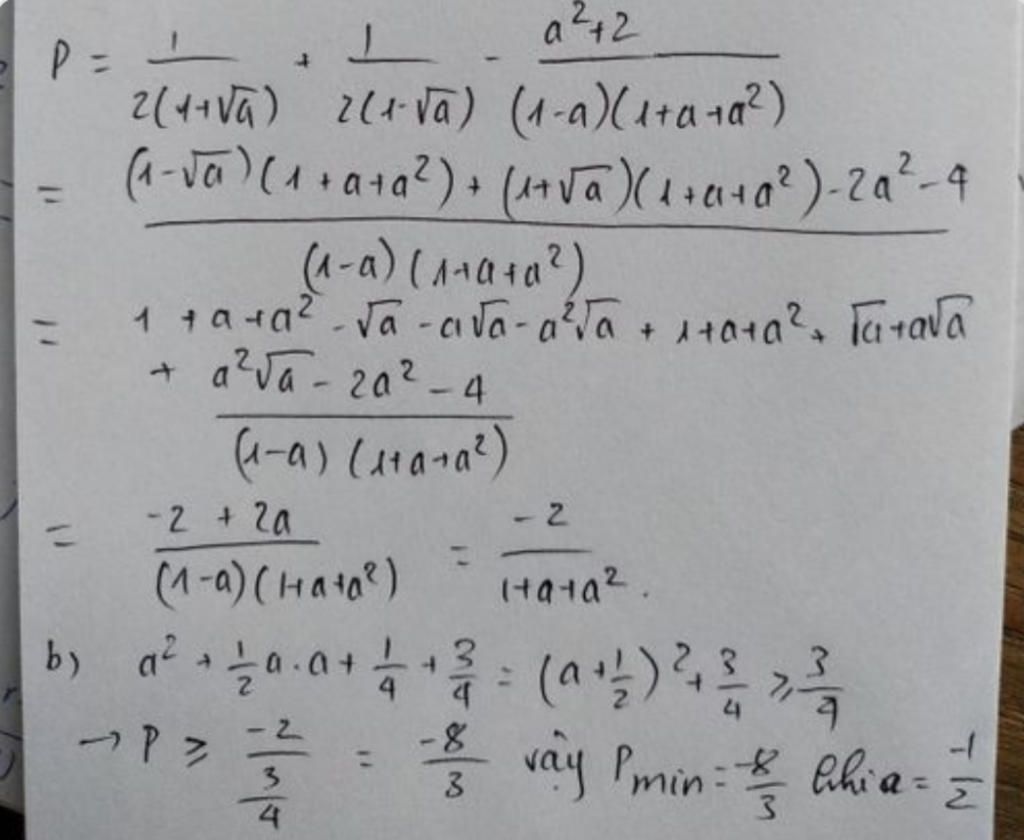 P = 1/(2(1+√a)) + 1/(2(1-√a)) - (a²+2)/((1-a)(1+a+a²))
= ((1-√a)(1+a+a²) + (1+√a)(1+a+a²) - 2a² - 4)/((1-a)(1+a+a²))
= 1 + a + a² - √a - a√a - a²√a + 1+a+a² + √a + a√a
+ a²√a - 2a² - 4 / (1-a)(1+a+a²)
= (-2 + 2a)/((1-a)(1+a+a²)) = -2/(1+a+a²).
b) a² + 1/2 a.a + 1/4 + 3/4 = (a+1/2)² + 3/4 ≥ 3/4
→ P ≥ -2/(3/4) = -8/3 vậy Pmin = -8/3 khi a = -1/2